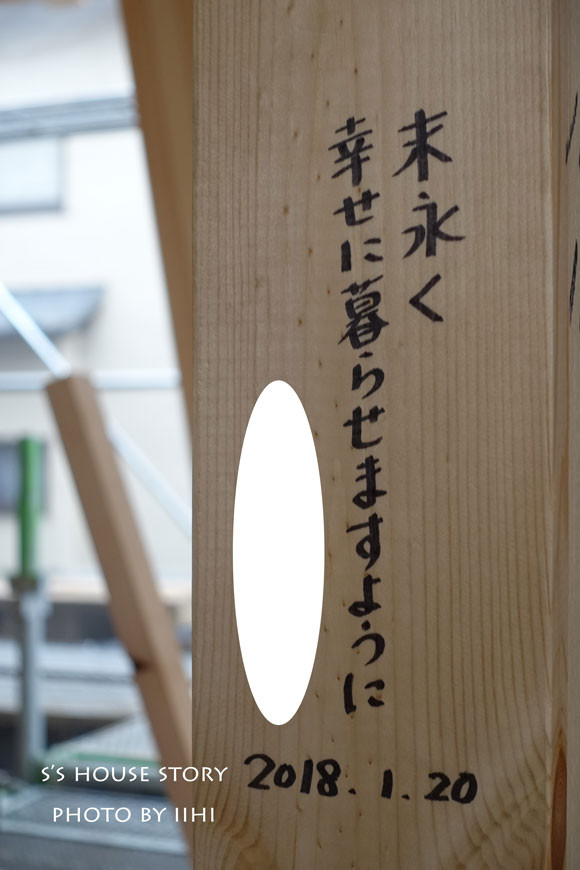 末永く
幸せに暮らせますように
2018.1.20
S'S HOUSE STORY
PHOTO BY IIHI